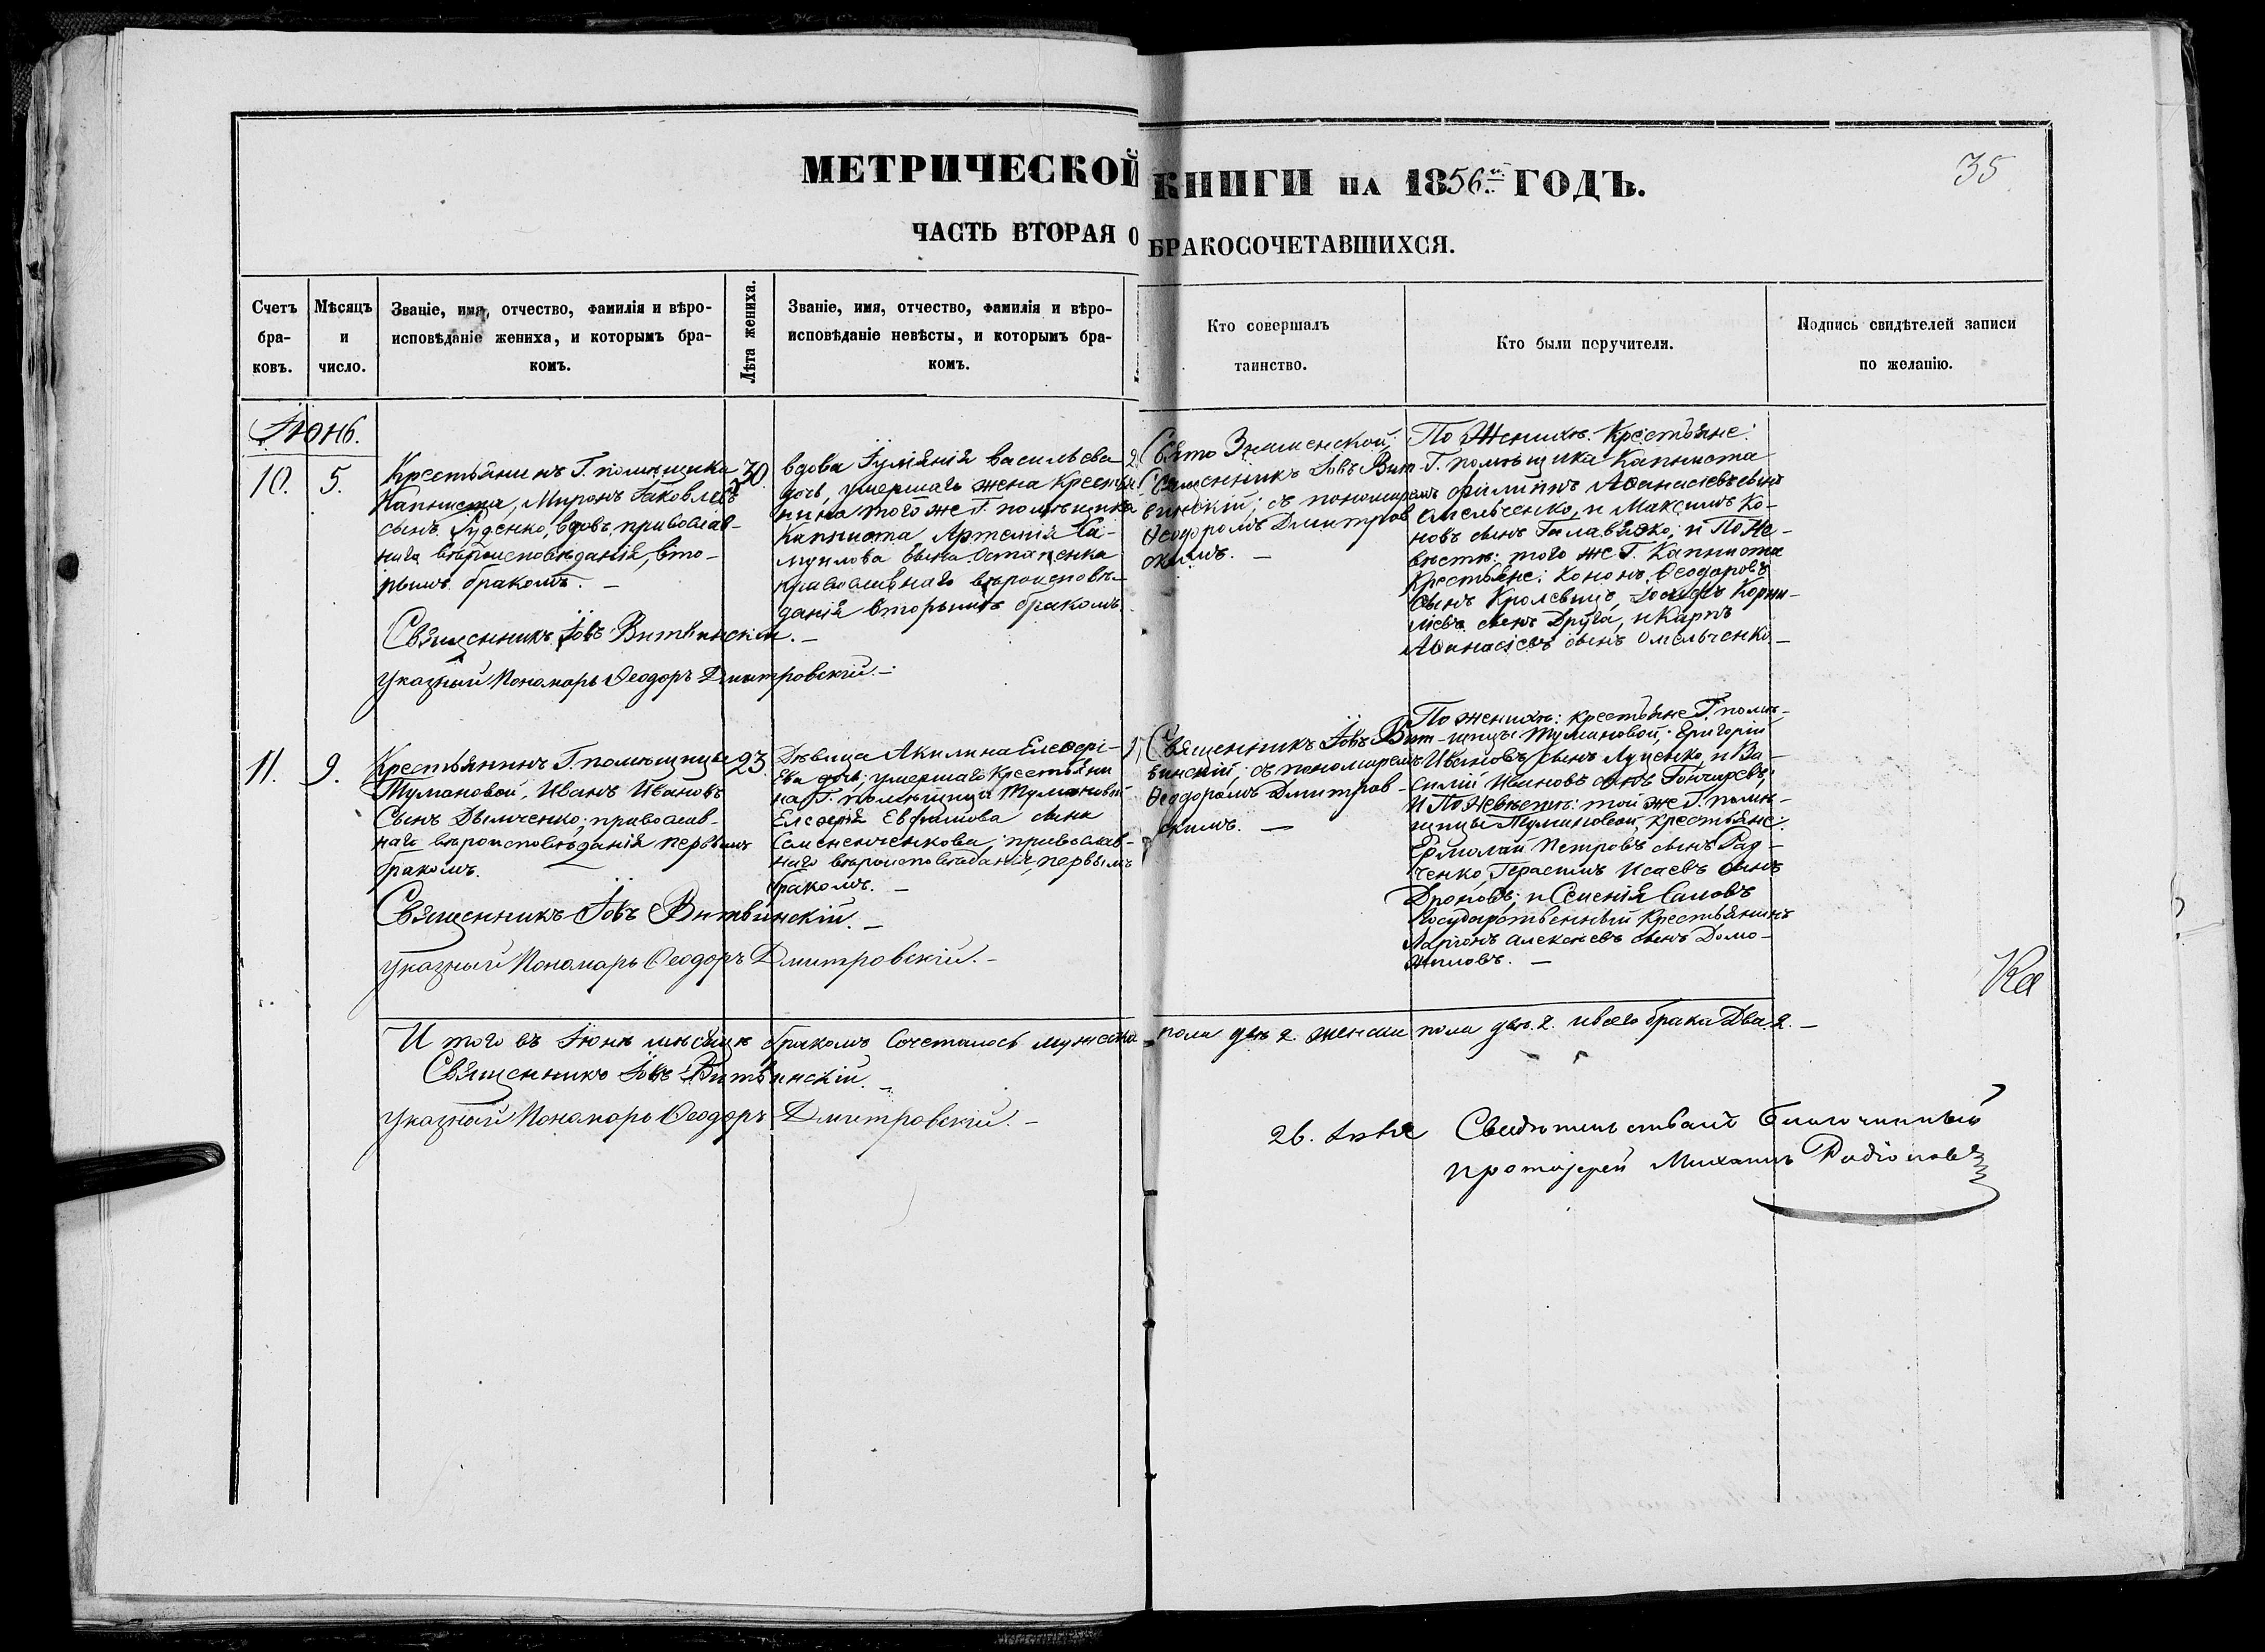 МЕТРИЧЕСКОЙ КНИГИ НА 1856й ГОДЪ.
35
ЧАСТЬ ВТОРАЯ О БРАКОСОЧЕТАВШИХСЯ.
Счетъ
бра-
ковъ.
Мѣсяцъ
и
число.
Званіе, имя, отчество, фамилія и вѣро-
исповѣданіе жениха, и которымъ бра-
комъ.
Лѣта жениха.
Званіе, имя, отчество, фамилія и вѣро-
исповѣданіе невѣсты, и которымъ бра-
комъ.
Кто совершалъ
таинство.
Кто были поручители.
Подпись свидѣтелей записи
по желанію.
Іюнь.
10.
5.
Крестьянинъ Г. помѣщика
Капниста, Миронъ Іаковлевъ
сынъ Руденко, вдовъ, православ-
наго вѣроисповѣданія, вто-
рымъ бракомъ. —
30.
вдова Іуліанія васильева
дочь, умершаго жена крестья
нина того же Г. помѣщика
Капниста Артемія Са-
муилова сына Остапенка
православнаго вѣроисповѣ-
данія вторымъ бракомъ.
2
Свято Знаменской
Священникъ Іовъ Вит-
винскій; съ пономаремъ
Ѳеодоромъ Дмитров
скимъ. —
По Женихѣ: Крестьяне:
Г. помѣщика Капниста
Филиппъ Аѳанасіевъ сынъ
Омельченко, и Максимъ Ко-
новъ сынъ и По Не-
вѣстѣ: того же Г. Капниста
Крестьяне: Кононъ Ѳеодоровъ
сынъ Іосифъ Корни-
ліевъ сынъ Друга, и Карпъ
Аѳанасіевъ сынъ Омельченко. —
Священникъ Іовъ Витвинскій. —
Указный Пономарь Ѳеодоръ Дмитровскій. —
11.
9.
Крестьянинъ Г. помѣщицы
Тумановой, Иванъ Ивановъ
Сынъ Демченко; православ-
наго вѣроисповѣданія первымъ
бракомъ. —
23.
Дѣвица Акилина Елеѳері-
ева дочь; умершаго Крестьяни
на Г. помѣщицы Тумановой
Елеѳерія Евфимова сына
православ-
наго вѣроисповѣданія, первымъ
бракомъ. —
Священникъ Іовъ Вит-
винскій; съ пономаремъ
Ѳеодоромъ Дмитров-
скимъ. —
По женихѣ: крестьяне Г. помѣ-
щицы Тумановой; Григорій
Ивановъ сынъ Луценко, и Ва-
силій Ивановъ сынъ Гончаревъ;
и По Невѣстѣ: той же Г. помѣ-
щицы Тумановой, крестьяне:
Ермолай Петровъ сынъ Рад-
ченко, Герасимъ Исаевъ сынъ
Дроновъ; и
Государственный крестьянинъ
Ларіонъ Алексѣевъ сынъ Домо-
жиловъ. —
Священникъ Іовъ Витвинскій. —
Указный Пономарь Ѳеодоръ Дмитровскій. —
Ка
И того въ Іюнѣ мѣсяцѣ бракомъ Сочеталось мужска пола два 2. женска пола двѣ. 2. и всего брака Два 2. —
Священникъ Іовъ Витвинскій. —
Указный Пономарь Ѳеодоръ Дмитровскій. —
26. Свидѣтельствовалъ Благочинный
протоіерей Михаилъ Родіоновъ